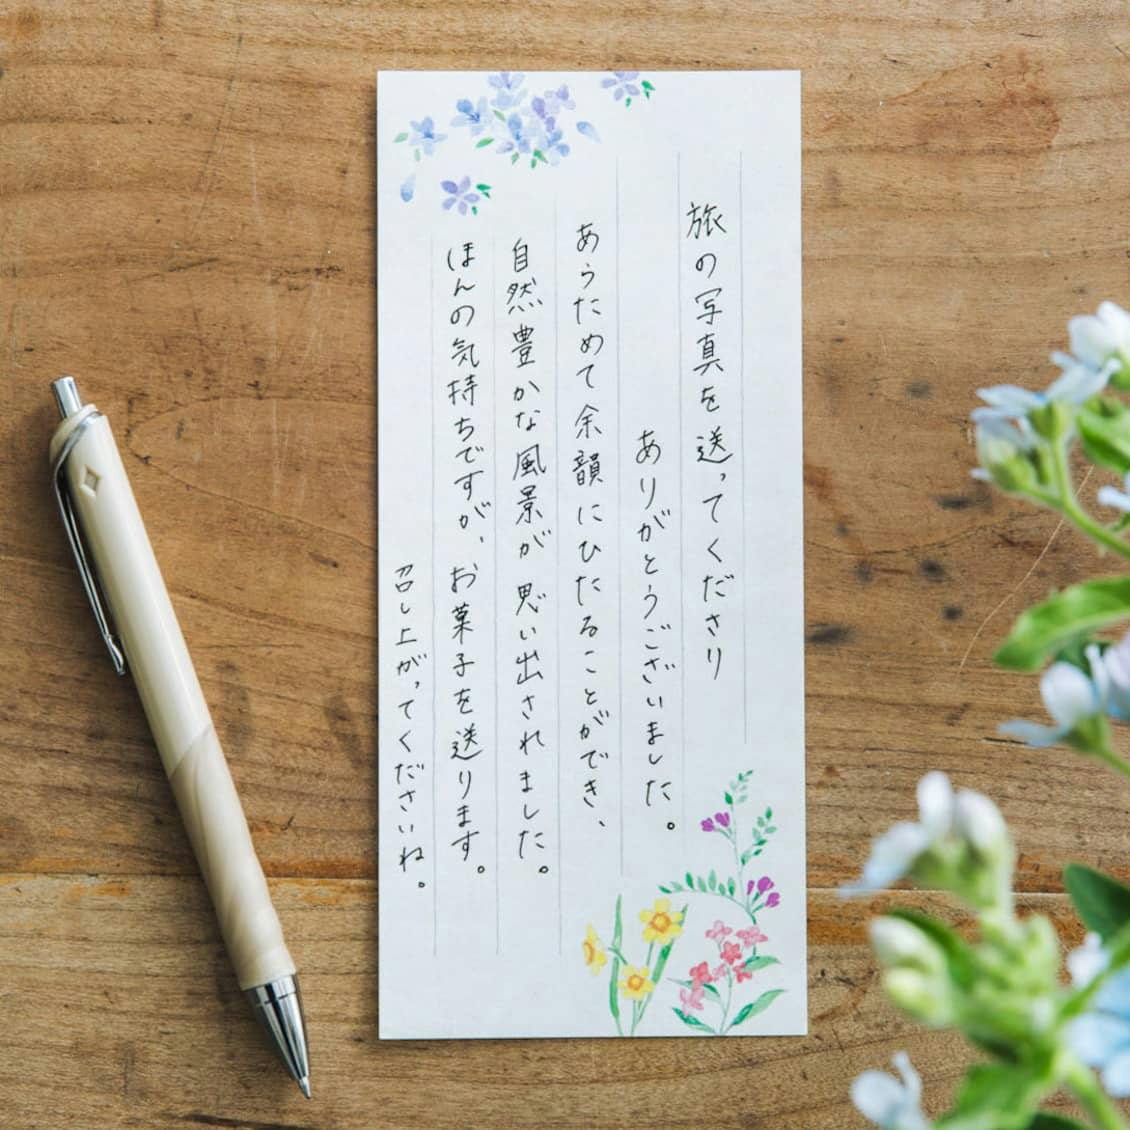 旅の写真を送ってくださり
ありがとうございました。
あらためて余韻にひたることができ、
自然豊かな風景が思い出されました。
ほんの気持ちですが、お菓子を送ります。
召し上がってくださいね。